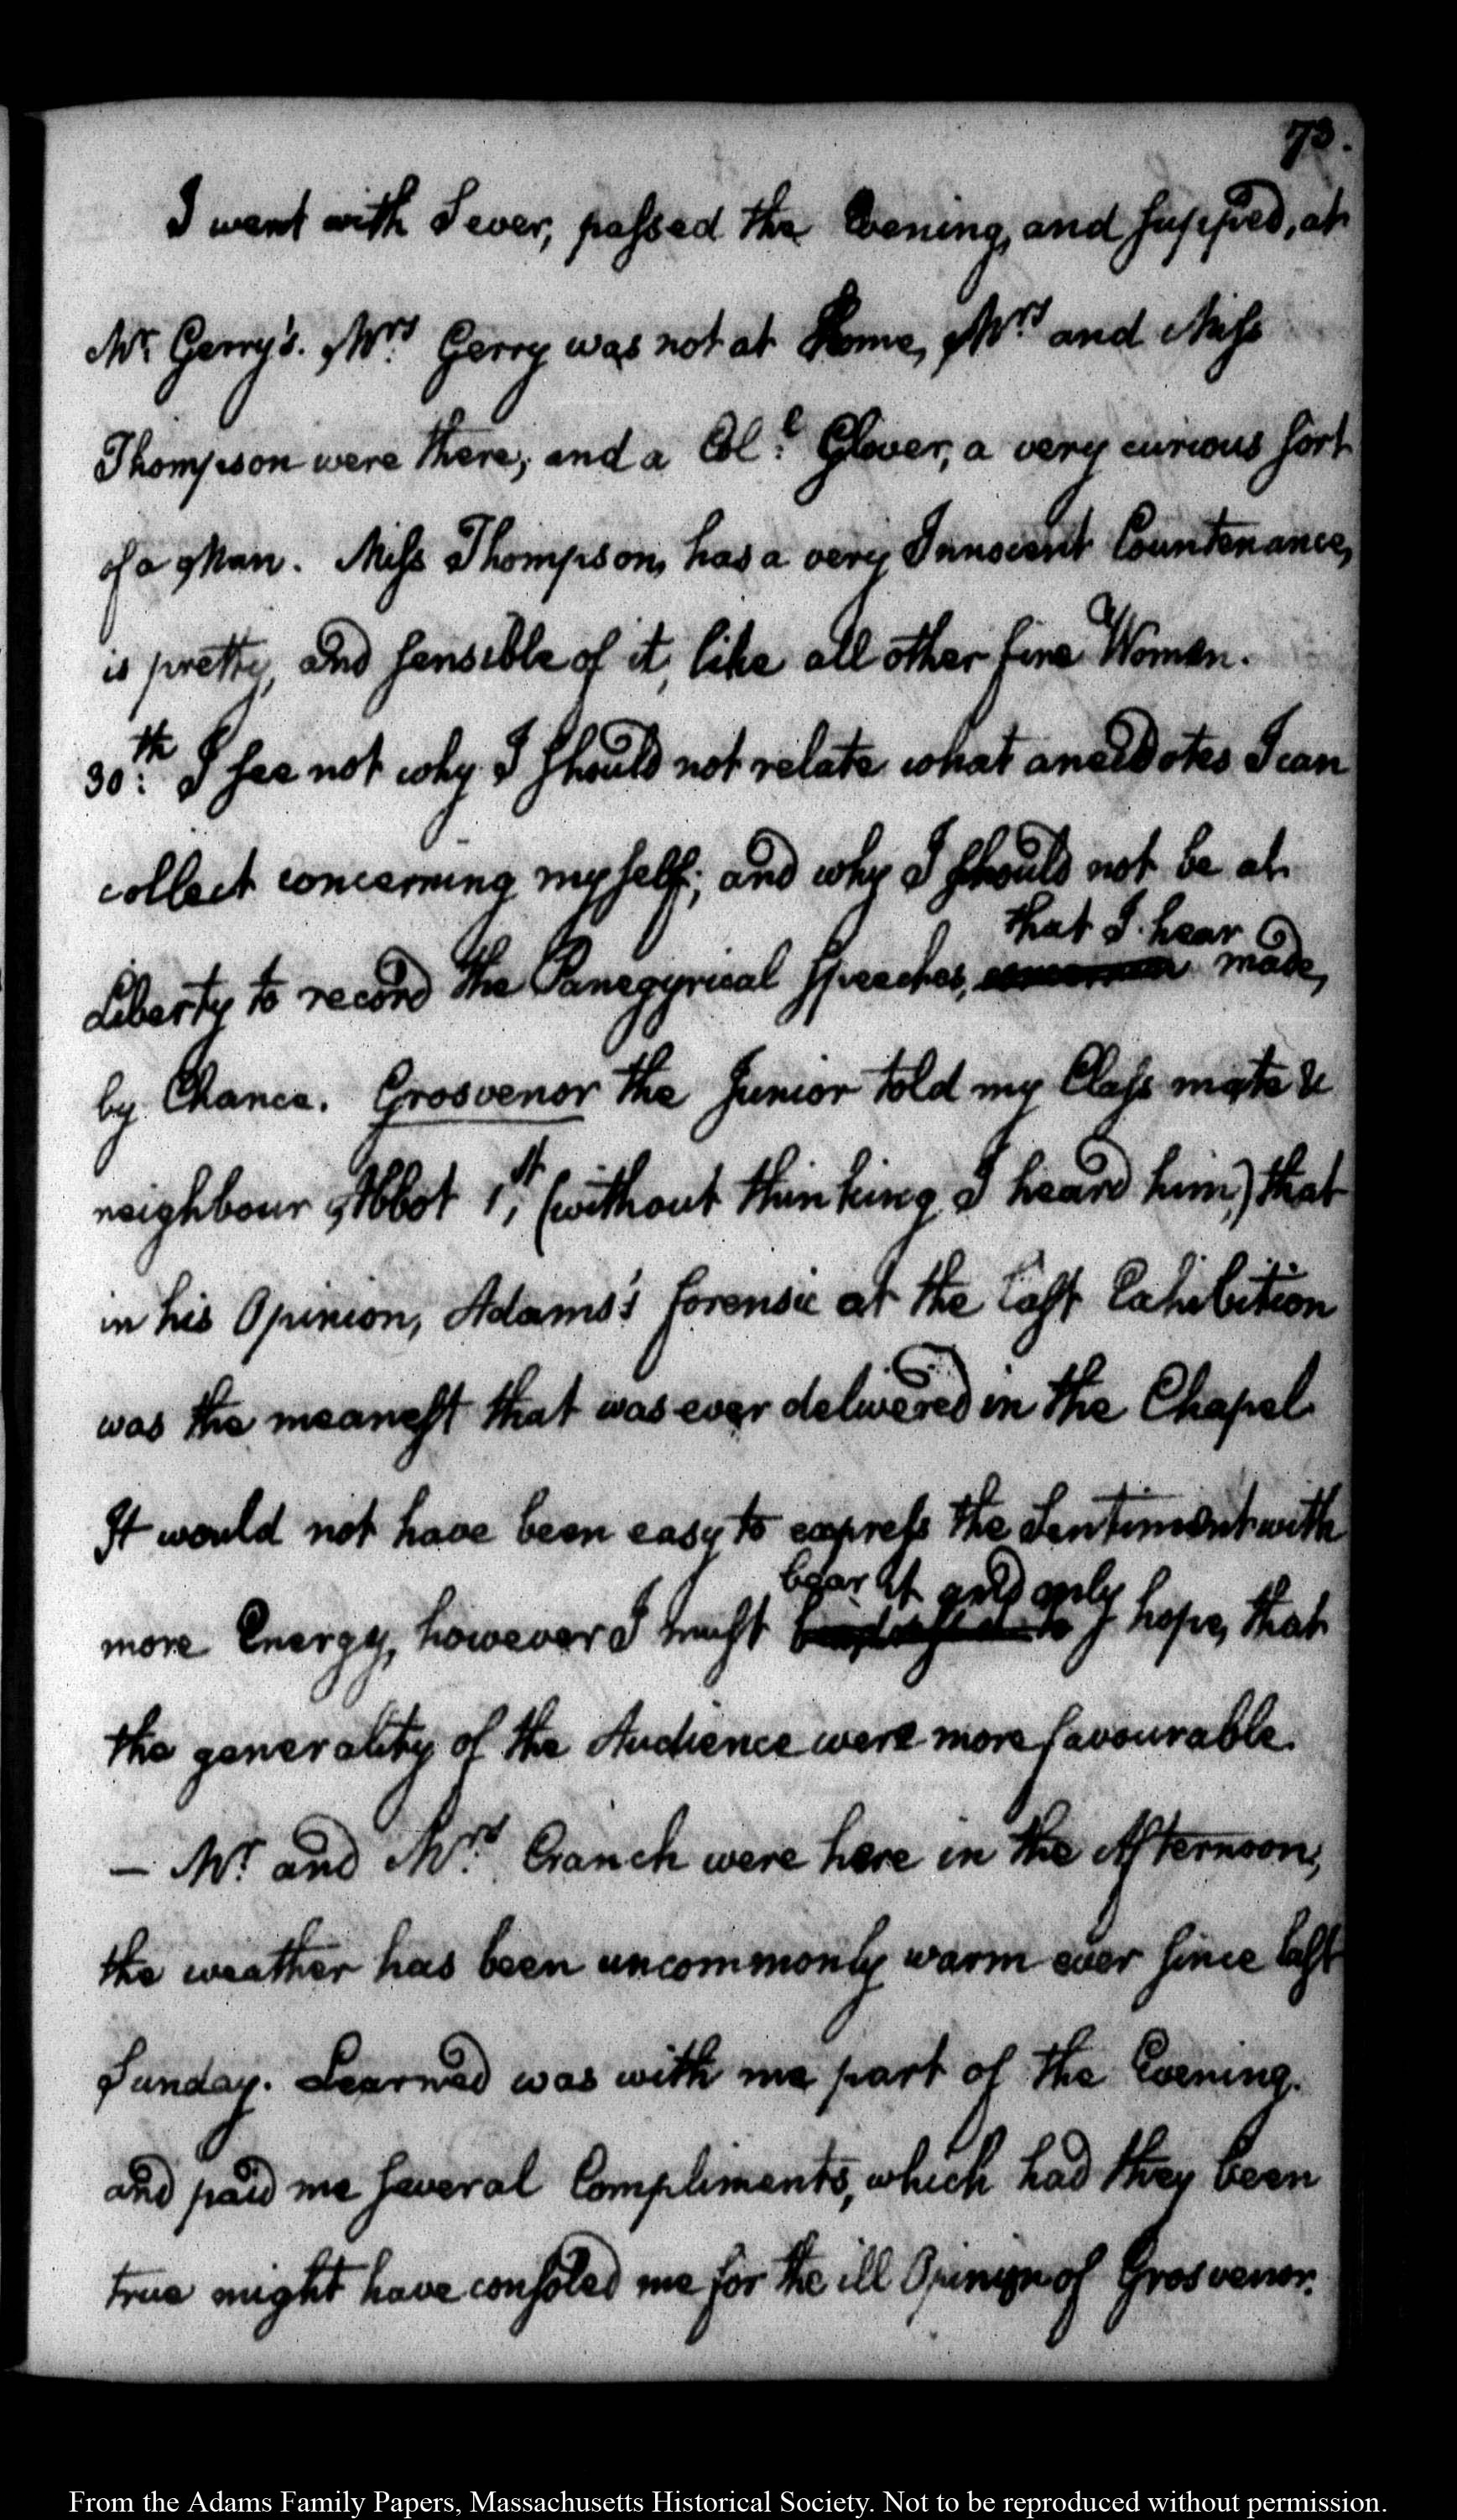 73.
I went with Sever, passed the Evening, and supped, at
Mr. Gerry's. Mrs. Gerry was not at Home, Mrs and Miss
Thompson were there; and a Coll. Glover, a very curious sort
of a Man. Miss Thompson, has a very Innocent Countenance,
is pretty, and sensible of it, like all other fine Women.
30th: I see not why I should not relate what anecdotes I can
collect concerning myself; and why I should not be at
that I hear
Liberty to record the Panegyrical Speeches, made,
by Chance. Grosvenor the Junior told my Class mate &
neighbour Abbot 1st, (without thinking I heard him,) that
in his Opinion, Adams's forensic at the last Exhibition
was the meanest that was ever delivered in the Chapel.
It would not have been easy to express the Sentiment with
bear it and only
more Energy, however I must hope, that
the generality of the Audience were more favourable.
— Mr. and Mrs. Cranch were here in the Afternoon;
the weather has been uncommonly warm ever since last
Sunday. Learned was with me part of the Evening.
and paid me several Compliments, which had they been
true might have consoled me for the ill Opinion of Grosvenor.
From the Adams Family Papers, Massachusetts Historical Society. Not to be reproduced without permission.